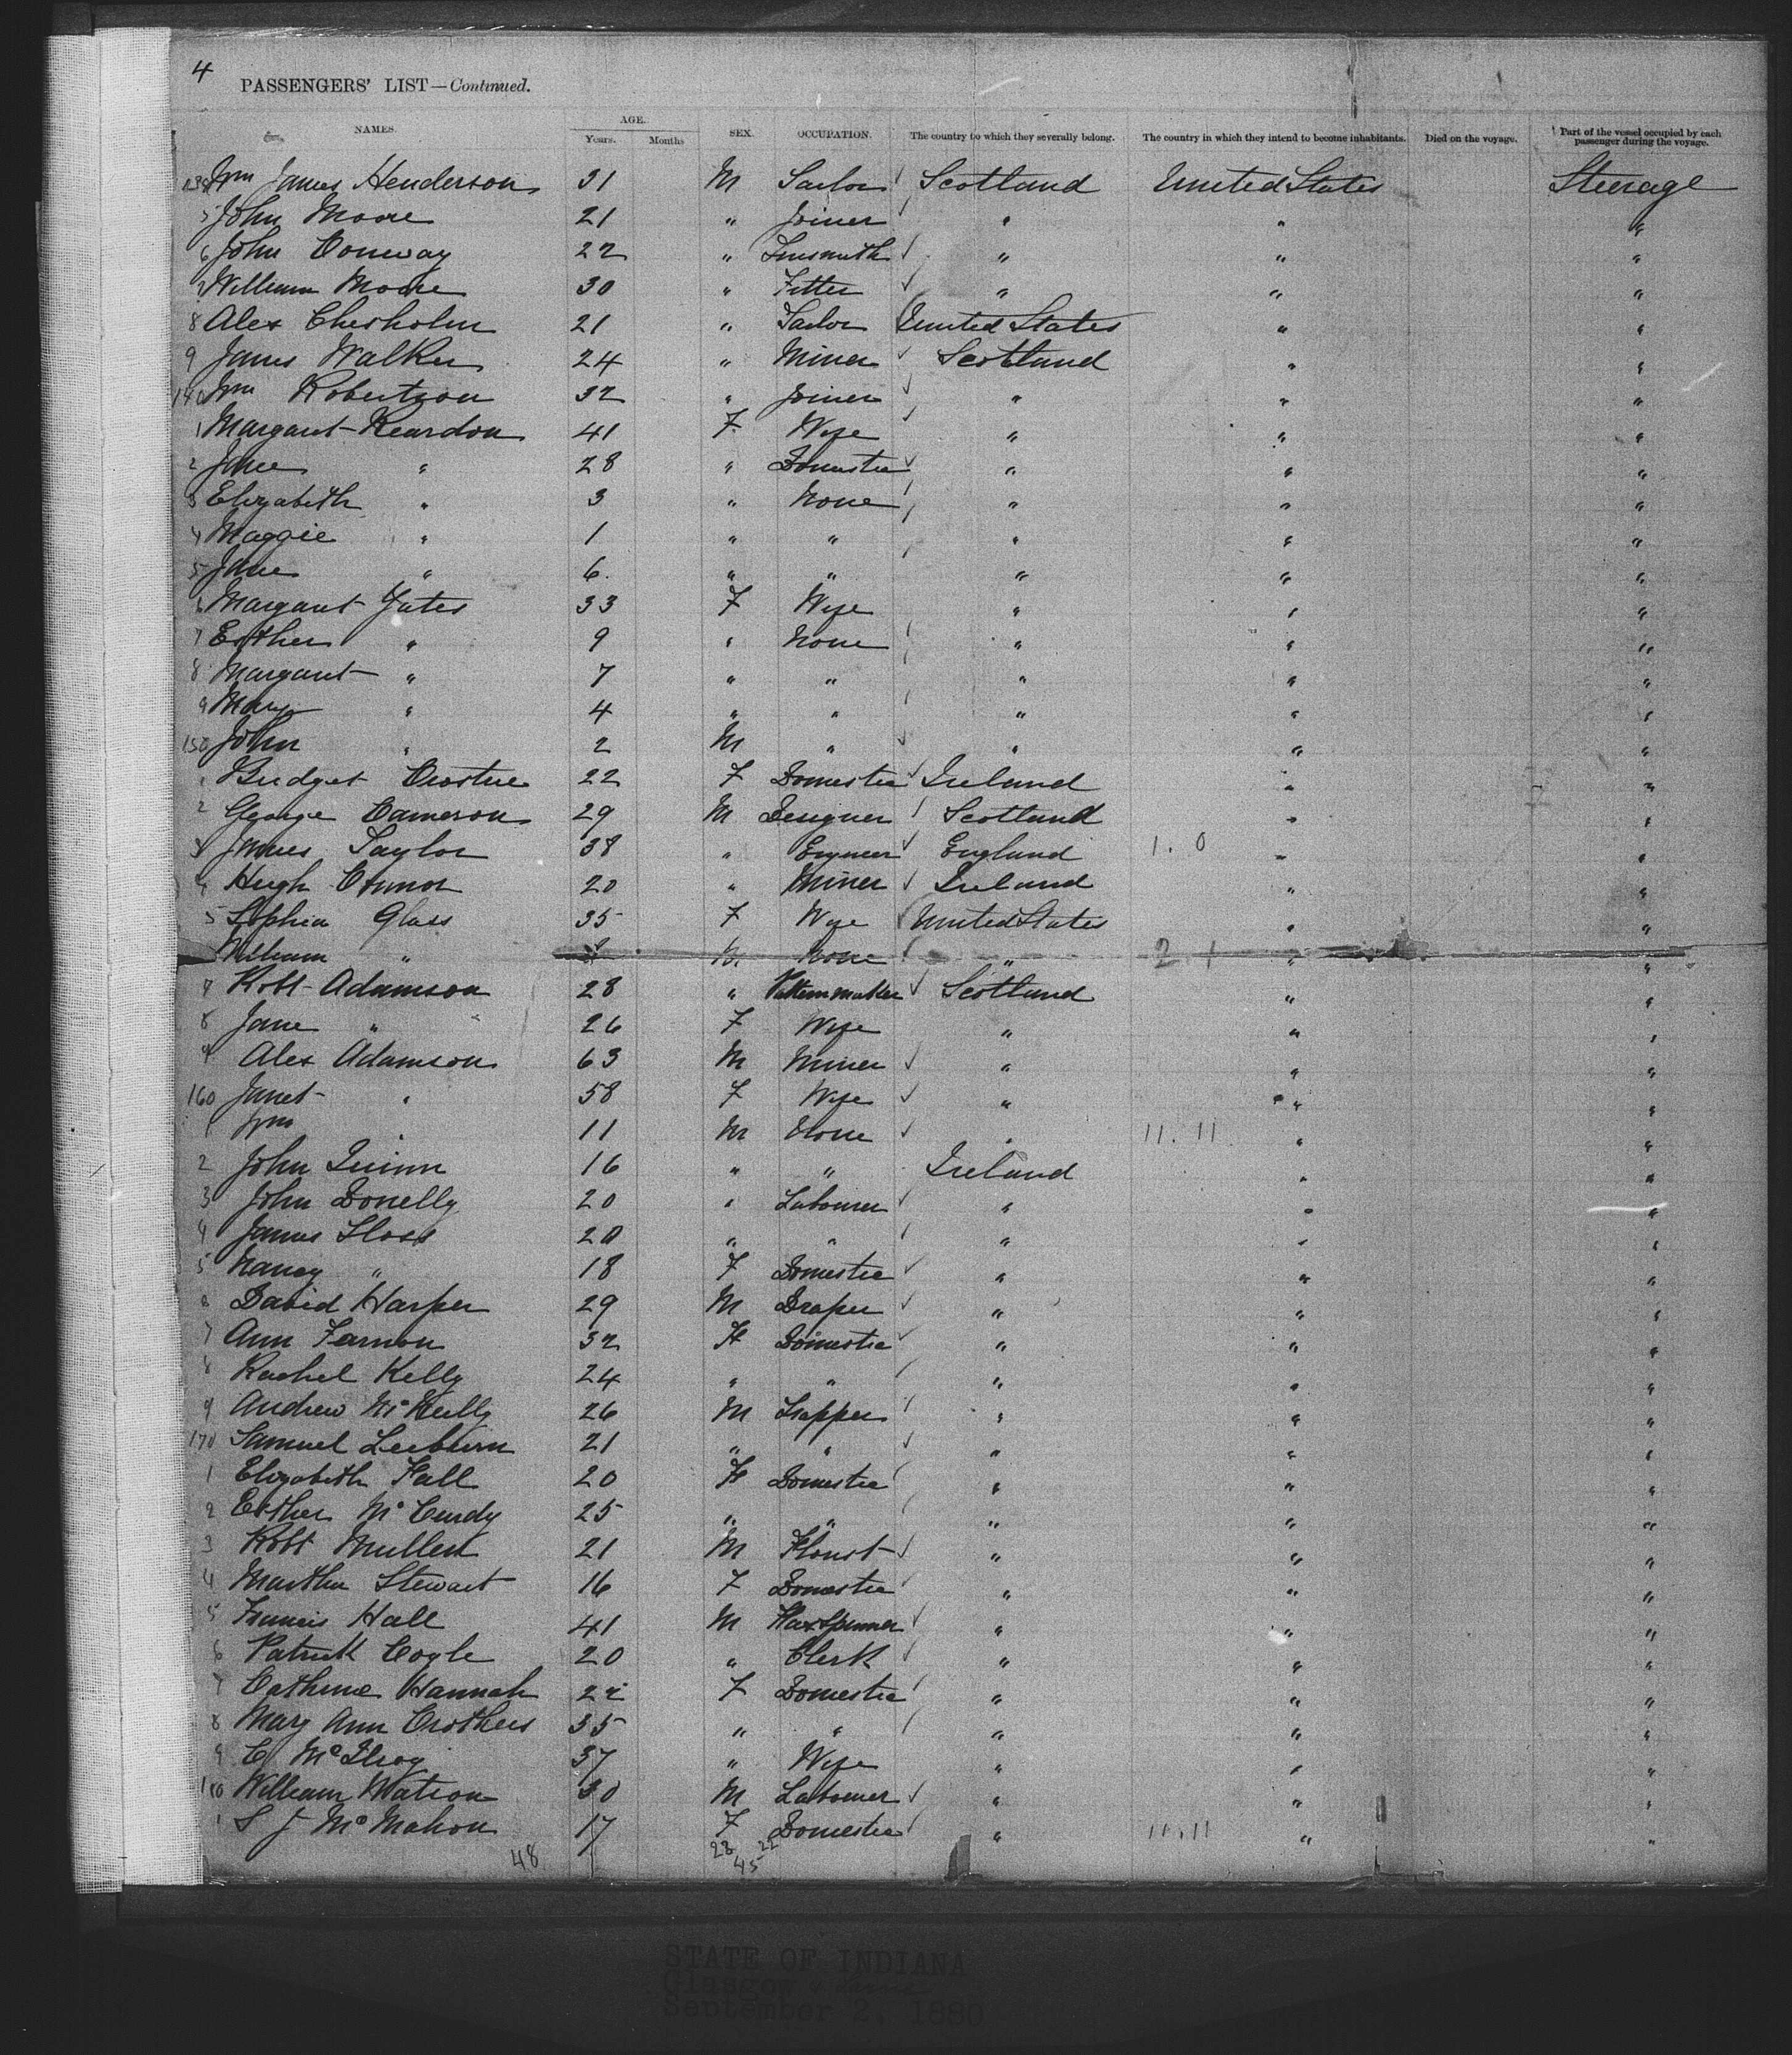 4
PASSENGERS' LIST—Continued.
NAMES. AGE. Years. Months SEX. OCCUPATION. The country to which they severally belong. The country in which they intend to become inhabitants. Died on the voyage. Part of the vessel occupied by each passenger during the voyage.
Wm James Henderson 31 M Sailor Scotland United States Steerage
5 John Moore 21 " Joiner " " "
6 John Conway 22 " Tinsmith " " "
7 William Moore 30 " Fitter " " "
8 Alex Chisholm 21 " United States " "
9 James Walker 24 " Miner Scotland " "
140 Wm Robertson 32 " Joiner " " "
1 Margaret Reardon 41 F Wife " " "
2 Jane " 28 " Domestic " " "
3 Elizabeth " 3 " None " " "
4 Maggie " 1 " " " " "
5 Jane " 6 " " " " "
6 Margaret Yates 33 F Wife " " "
7 Esther " 9 " None " " "
8 Margaret " 7 " " " " "
9 Mary " 4 " " " " "
150 John " 2 M " " " "
1 Bridget 22 F Domestic Ireland " "
2 George Cameron 29 M Designer Scotland " "
3 James Taylor 38 " Engineer England 1. 0 " "
4 Hugh Connor 20 " Miner Ireland " "
5 Sophia Glass 35 F Wife United States " "
William " M None " 2 1 " "
7 Robt Adamson 28 " Patternmaker Scotland " "
8 Jane " 26 F Wife " " "
9 Alex Adamson 63 M Miner " " "
160 Janet " 58 F Wife " " "
1 Wm " 11 M None " 11. 11 " "
2 John Quinn 16 " " Ireland " "
3 John Donelly 20 " Labourer " " "
4 James Sloss 20 " " " " "
5 Nancy " 18 F Domestic " " "
6 David Harper 29 M Draper " " "
7 Ann Farnon 32 F Domestic " " "
8 Rachel Kelly 24 " " " " "
9 Andrew 26 M Lapper " " "
170 Samuel Leeburn 21 " " " " "
1 Elizabeth Hall 20 F Domestic " " "
2 Esther McCurdy 25 " " " " "
3 Robt 21 M Florist " " "
4 Martha Stewart 16 F Domestic " " "
5 Francis Hall 41 M Flaxspinner " " "
6 Patrick Coyle 20 " Clerk " " "
7 Catherine Hannah F Domestic " " "
8 Mary Ann Crothers 35 " " " " "
9 C McIlroy 37 " Wife " " "
180 William Watson 30 M Labourer " " "
1 S J McMahon 17 F Domestic " 11.11 " "
48 23 22
45
STATE OF INDIANA
Glasgow
September 2, 1880